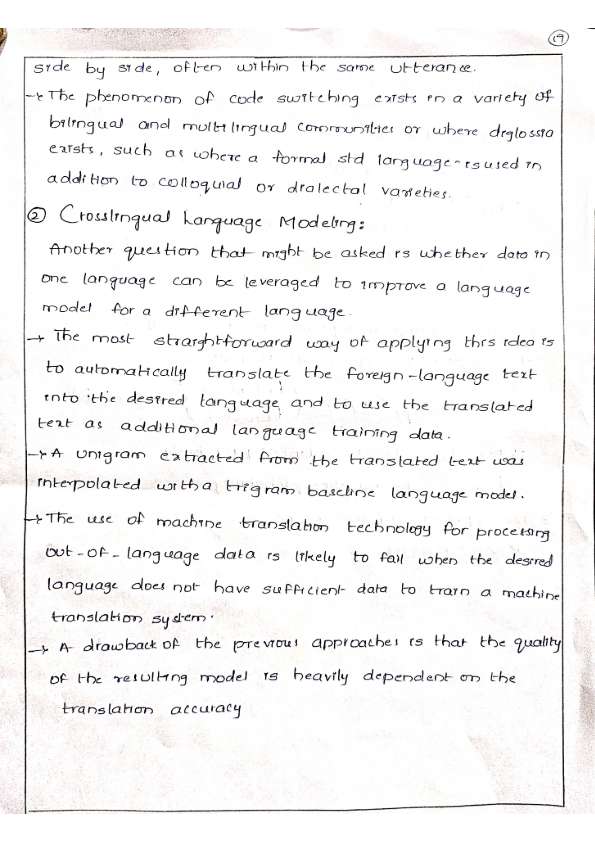 19
side by side, often within the same utterance.
→ The phenomenon of code switching exists in a variety of
bilingual and multilingual communities or where diglossia
exists, such as where a formal std language is used in
addition to colloquial or dialectal varieties.
② Crosslingual Language Modeling:
Another question that might be asked is whether data in
one language can be leveraged to improve a language
model for a different language.
→ The most straightforward way of applying this idea is
to automatically translate the foreign-language text
into the desired language and to use the translated
text as additional language training data.
→ A unigram extracted from the translated text was
interpolated with a trigram baseline language model.
→ The use of machine translation technology for processing
out-of-language data is likely to fail when the desired
language does not have sufficient data to train a machine
translation system.
→ A drawback of the previous approaches is that the quality
of the resulting model is heavily dependent on the
translation accuracy